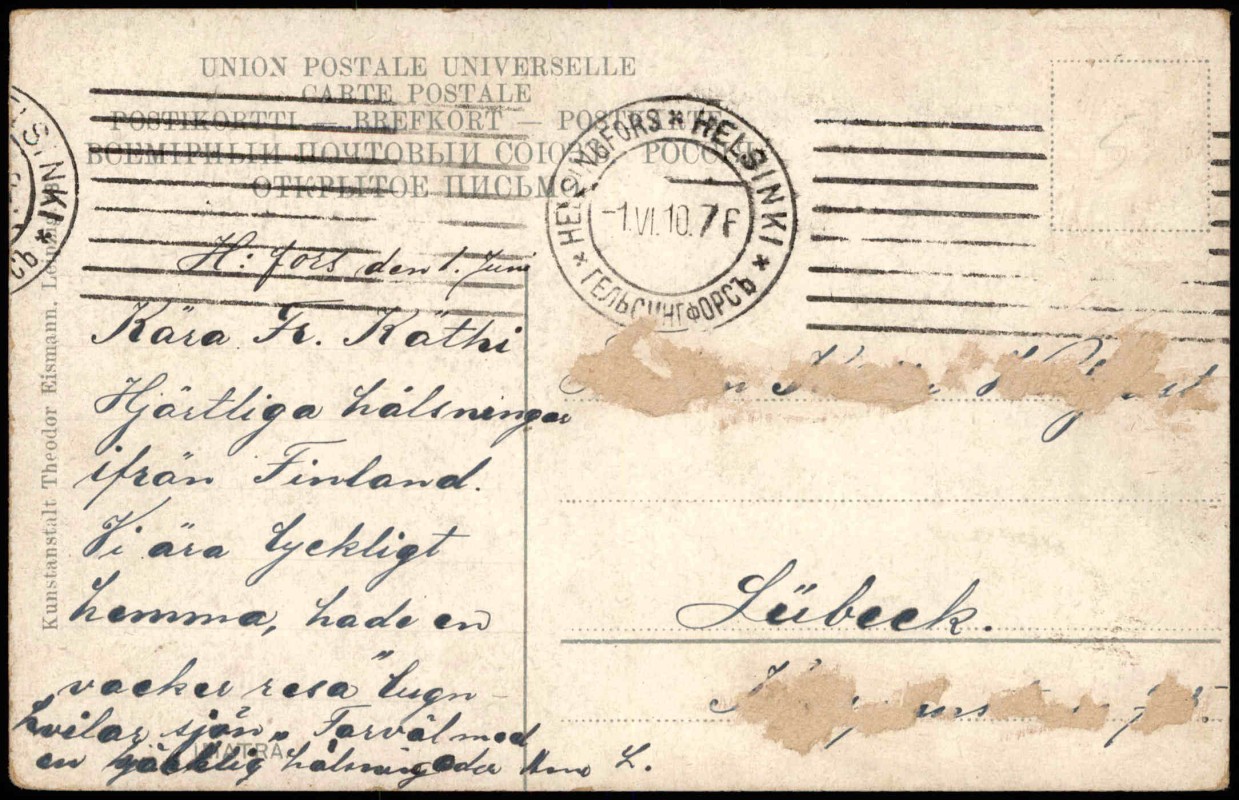 UNION POSTALE UNIVERSELLE
CARTE POSTALE
POSTIKORTTI — BREFKORT —
ВСЕМІРНЫЙ ПОЧТОВЫЙ СОЮЗЪ РОССІЯ
ОТКРЫТОЕ ПИСЬМО
HELSINGFORS * HELSINKI *
-1.VI.10. 7 F
ГЕЛЬСИНГФОРСЪ *
H:fors den 1. Juni
Kära Fr. Käthi
Hjärtliga hälsningar
ifrån Finland.
Vi ära lyckligt
hemma, hade en
vacker resa "Lugn
hvilar sjön" Farväl med
en hälsning
L.
IMATRA
Lübeck.
Kunstanstalt Theodor Eismann, Leipzig